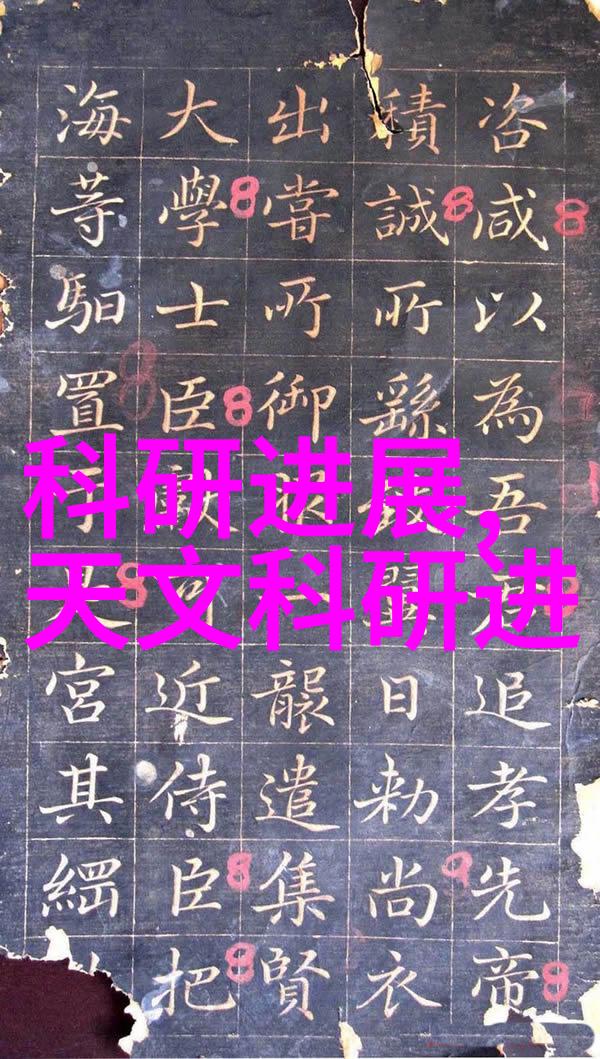 咨咸以為吾追孝先帝
積誠所繇日勅尚衣
出嘗所御襲遣集賢
大學士臣獻可近侍臣把
海等馹置大宮其
科研进展,
天文科研进